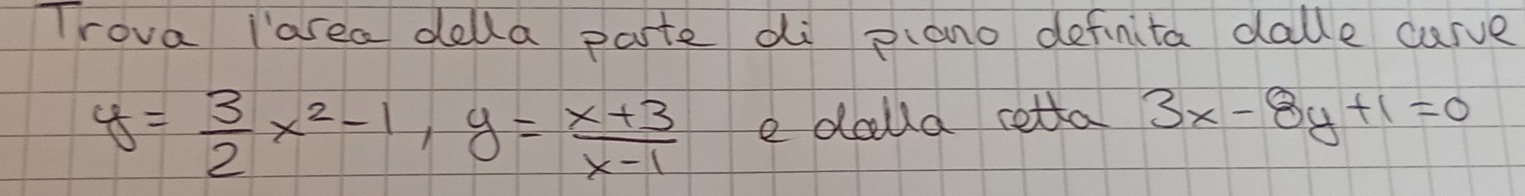 Trova l'area della parte di piano definita dalle curve
y = 3/2 x² - 1, y = x+3/x-1 e dalla retta 3x - 8y + 1 = 0